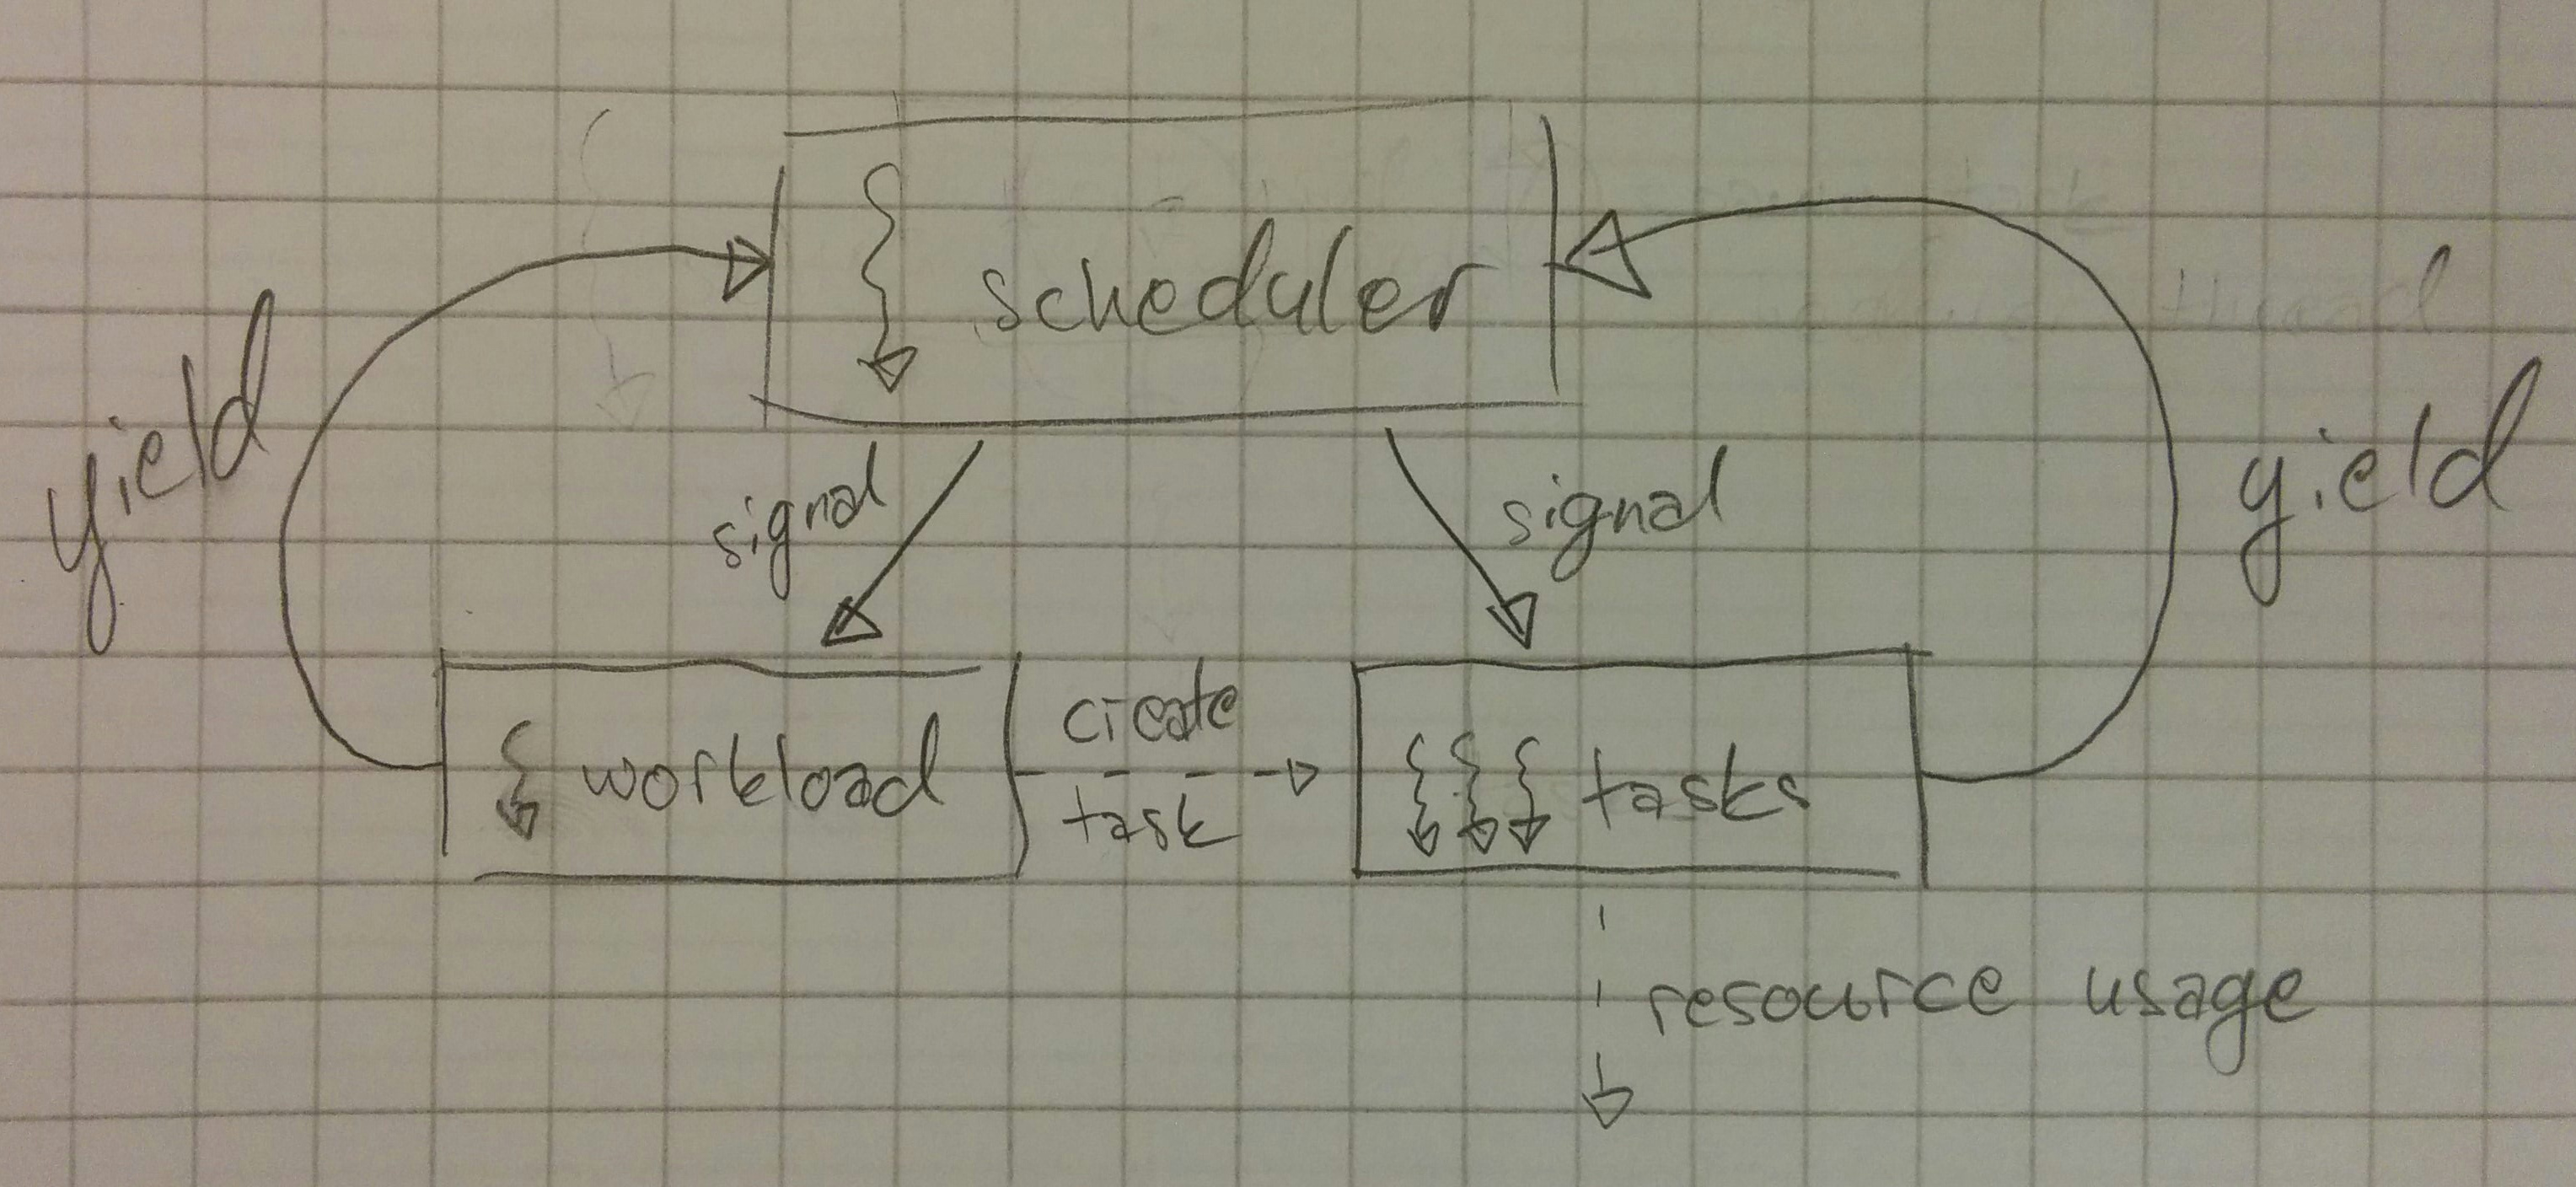 scheduler
yield
signal
signal
yield
workload
create
task
tasks
resource usage